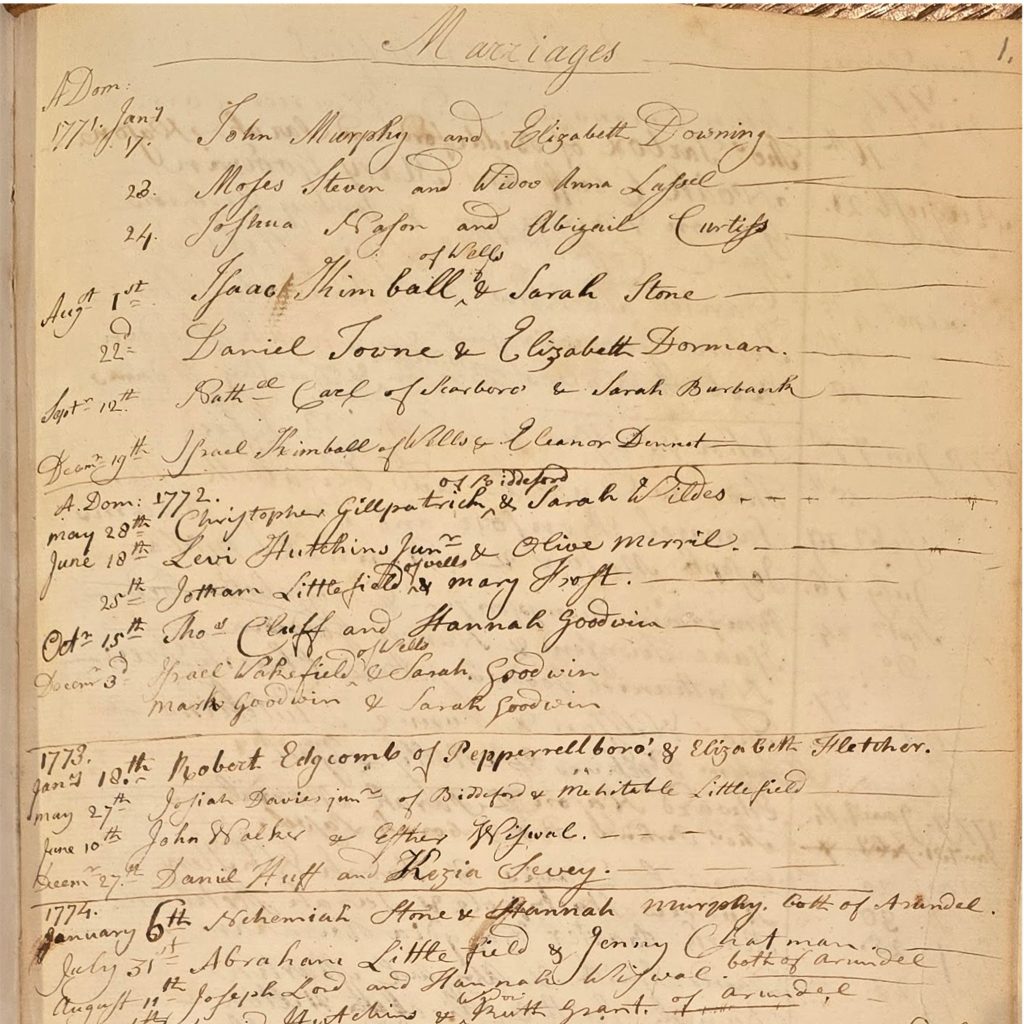 Marriages 1.
A Dom:
1771. Jany 17. John Murphy and Elizabeth Downing
23. Moses Steven and Widow Anna Lassel
24. Joshua Nason and Abigail Curtiss
Augst 1st Isaac Kimball of Wells & Sarah Stone
22d Daniel Towne & Elizabeth Dorman.
Septr 12th Nathel Carl of Scarboro & Sarah Burbank
Decemr 19th Israel Kimball of Wells & Eleanor Dennet
A. Dom: 1772.
may 28th Christopher Gillpatrick of Biddeford & Sarah Wildes
June 18th Levi Hutchins Junr & Olive Merril.
25th Jotham Littlefield of Wells & mary Frost.
Octr 15th Thos Cluff and Hannah Goodwin
Decemr 3d Israel Wakefield of Wells & Sarah Goodwin
mark Goodwin & Sarah Goodwin
1773.
Jany 18th Robert Edgcomb of Pepperrellboro'. & Elizabeth Fletcher.
may 27th Josiah Davies junr of Biddeford & Mehitable Littlefield
June 10th John Walker & Esther Wiswal.
Decemr 27th Daniel Huff and Kezia Sevey.
1774.
January 6th Nehemiah Stone & Hannah murphy. both of Arundel.
July 31st Abraham Littlefield & Jenny Chatman.
August 11th Joseph Lord and Hannah Wiswal. both of Arundel
Hutchins & Widow Ruth Grant. of Arundel